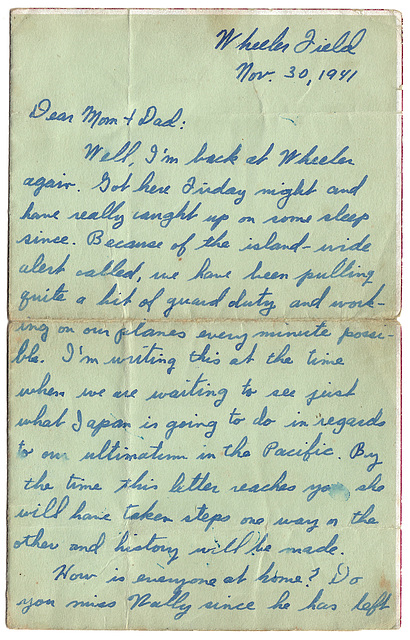 Wheeler Field
Nov. 30, 1941
Dear Mom + Dad:
Well, I'm back at Wheeler
again. Got here Firday night and
have really caught up on some sleep
since. Because of the island-wide
alert called, we have been pulling
quite a bit of guard duty and work-
ing on our planes every minute possi-
ble. I'm writing this at the time
when we are waiting to see just
what Japan is going to do in regards
to our ultimatum in the Pacific. By
the time this letter reaches you she
will have taken steps one way or the
other and history will be made.
How is everyone at home? Do
you miss Wally since he has left